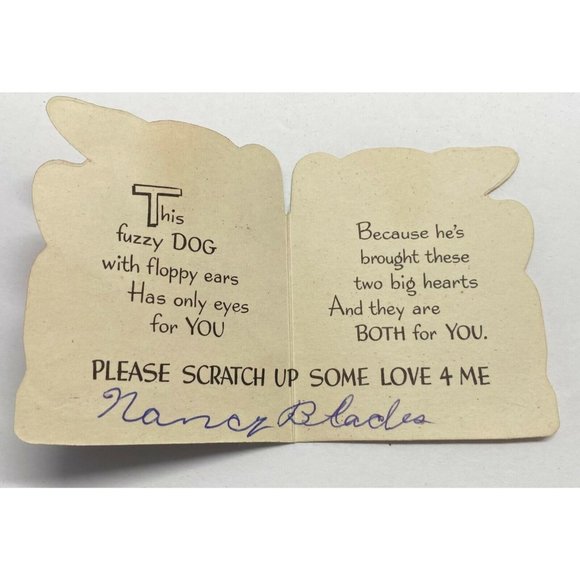 This
fuzzy DOG
with floppy ears
Has only eyes
for YOU
Because he's
brought these
two big hearts
And they are
BOTH for YOU.
PLEASE SCRATCH UP SOME LOVE 4 ME
Nancy Blades